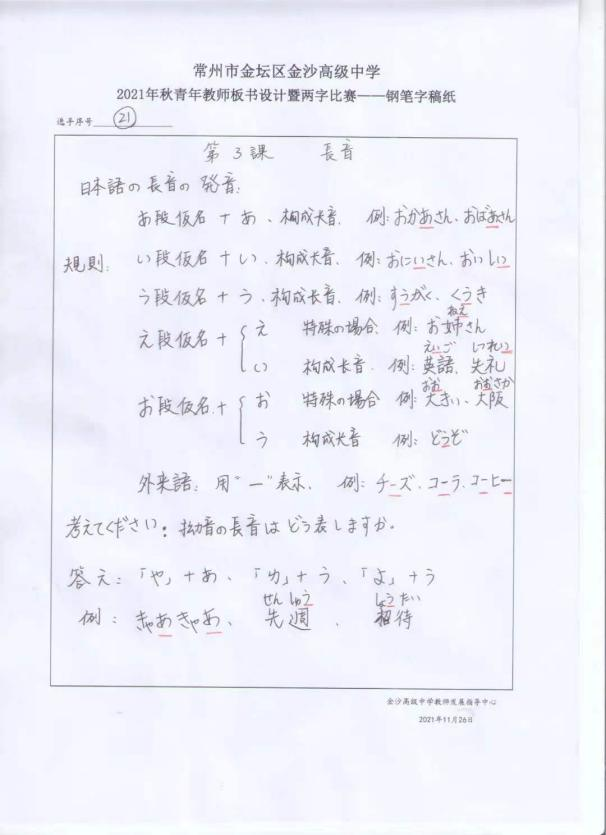 常州市金坛区金沙高级中学
2021年秋青年教师板书设计暨两字比赛——钢笔字稿纸
选手序号 21
第3課 長音
日本語の長音の発音:
あ段仮名+あ、构成长音. 例:おかあさん、おばあさん
規則: い段仮名+い、构成長音. 例:おにいさん、おいしい
う段仮名+う、构成長音. 例:すうがく、くうき
ねえ
え段仮名+ え 特殊の場合. 例:お姉さん
えいご しつれい
い 构成长音. 例:英語、失礼
おお おおさか
お段仮名.+ お 特殊の場合 例:大きい、大阪
う 构成长音 例:どうぞ
外来語:用"ー"表示、例:チーズ、コーラ、コーヒー
考えてください:拗音の長音はどう表しますか。
答え:「や」+あ、「ゆ」+う、「よ」+う
せんしゅう しょうたい
例:きゃあきゃあ、先週、招待
金沙高级中学教师发展指导中心
2021年11月26日